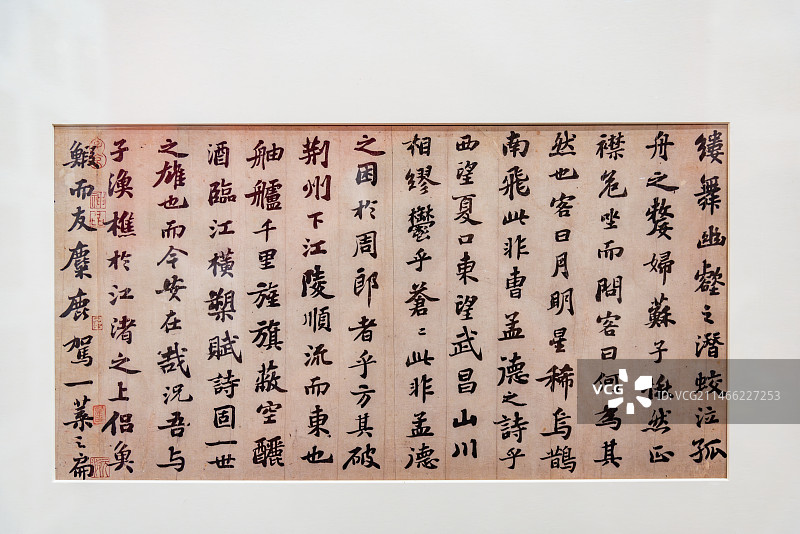 縷舞幽壑之潛蛟泣孤
舟之嫠婦蘇子愀然正
襟危坐而問客曰何為其
然也客曰月明星稀烏鵲
南飛此非曹孟德之詩乎
西望夏口東望武昌山川
相繆鬱乎蒼〻此非孟德
之困於周郎者乎方其破
荆州下江陵順流而東也
舳艫千里旌旗蔽空釃
酒臨江橫槊賦詩固一世
之雄也而今安在哉況吾與
子漁樵於江渚之上侶魚
鰕而友麋鹿駕一葉之扁
VCG
ID:VCG211466227253